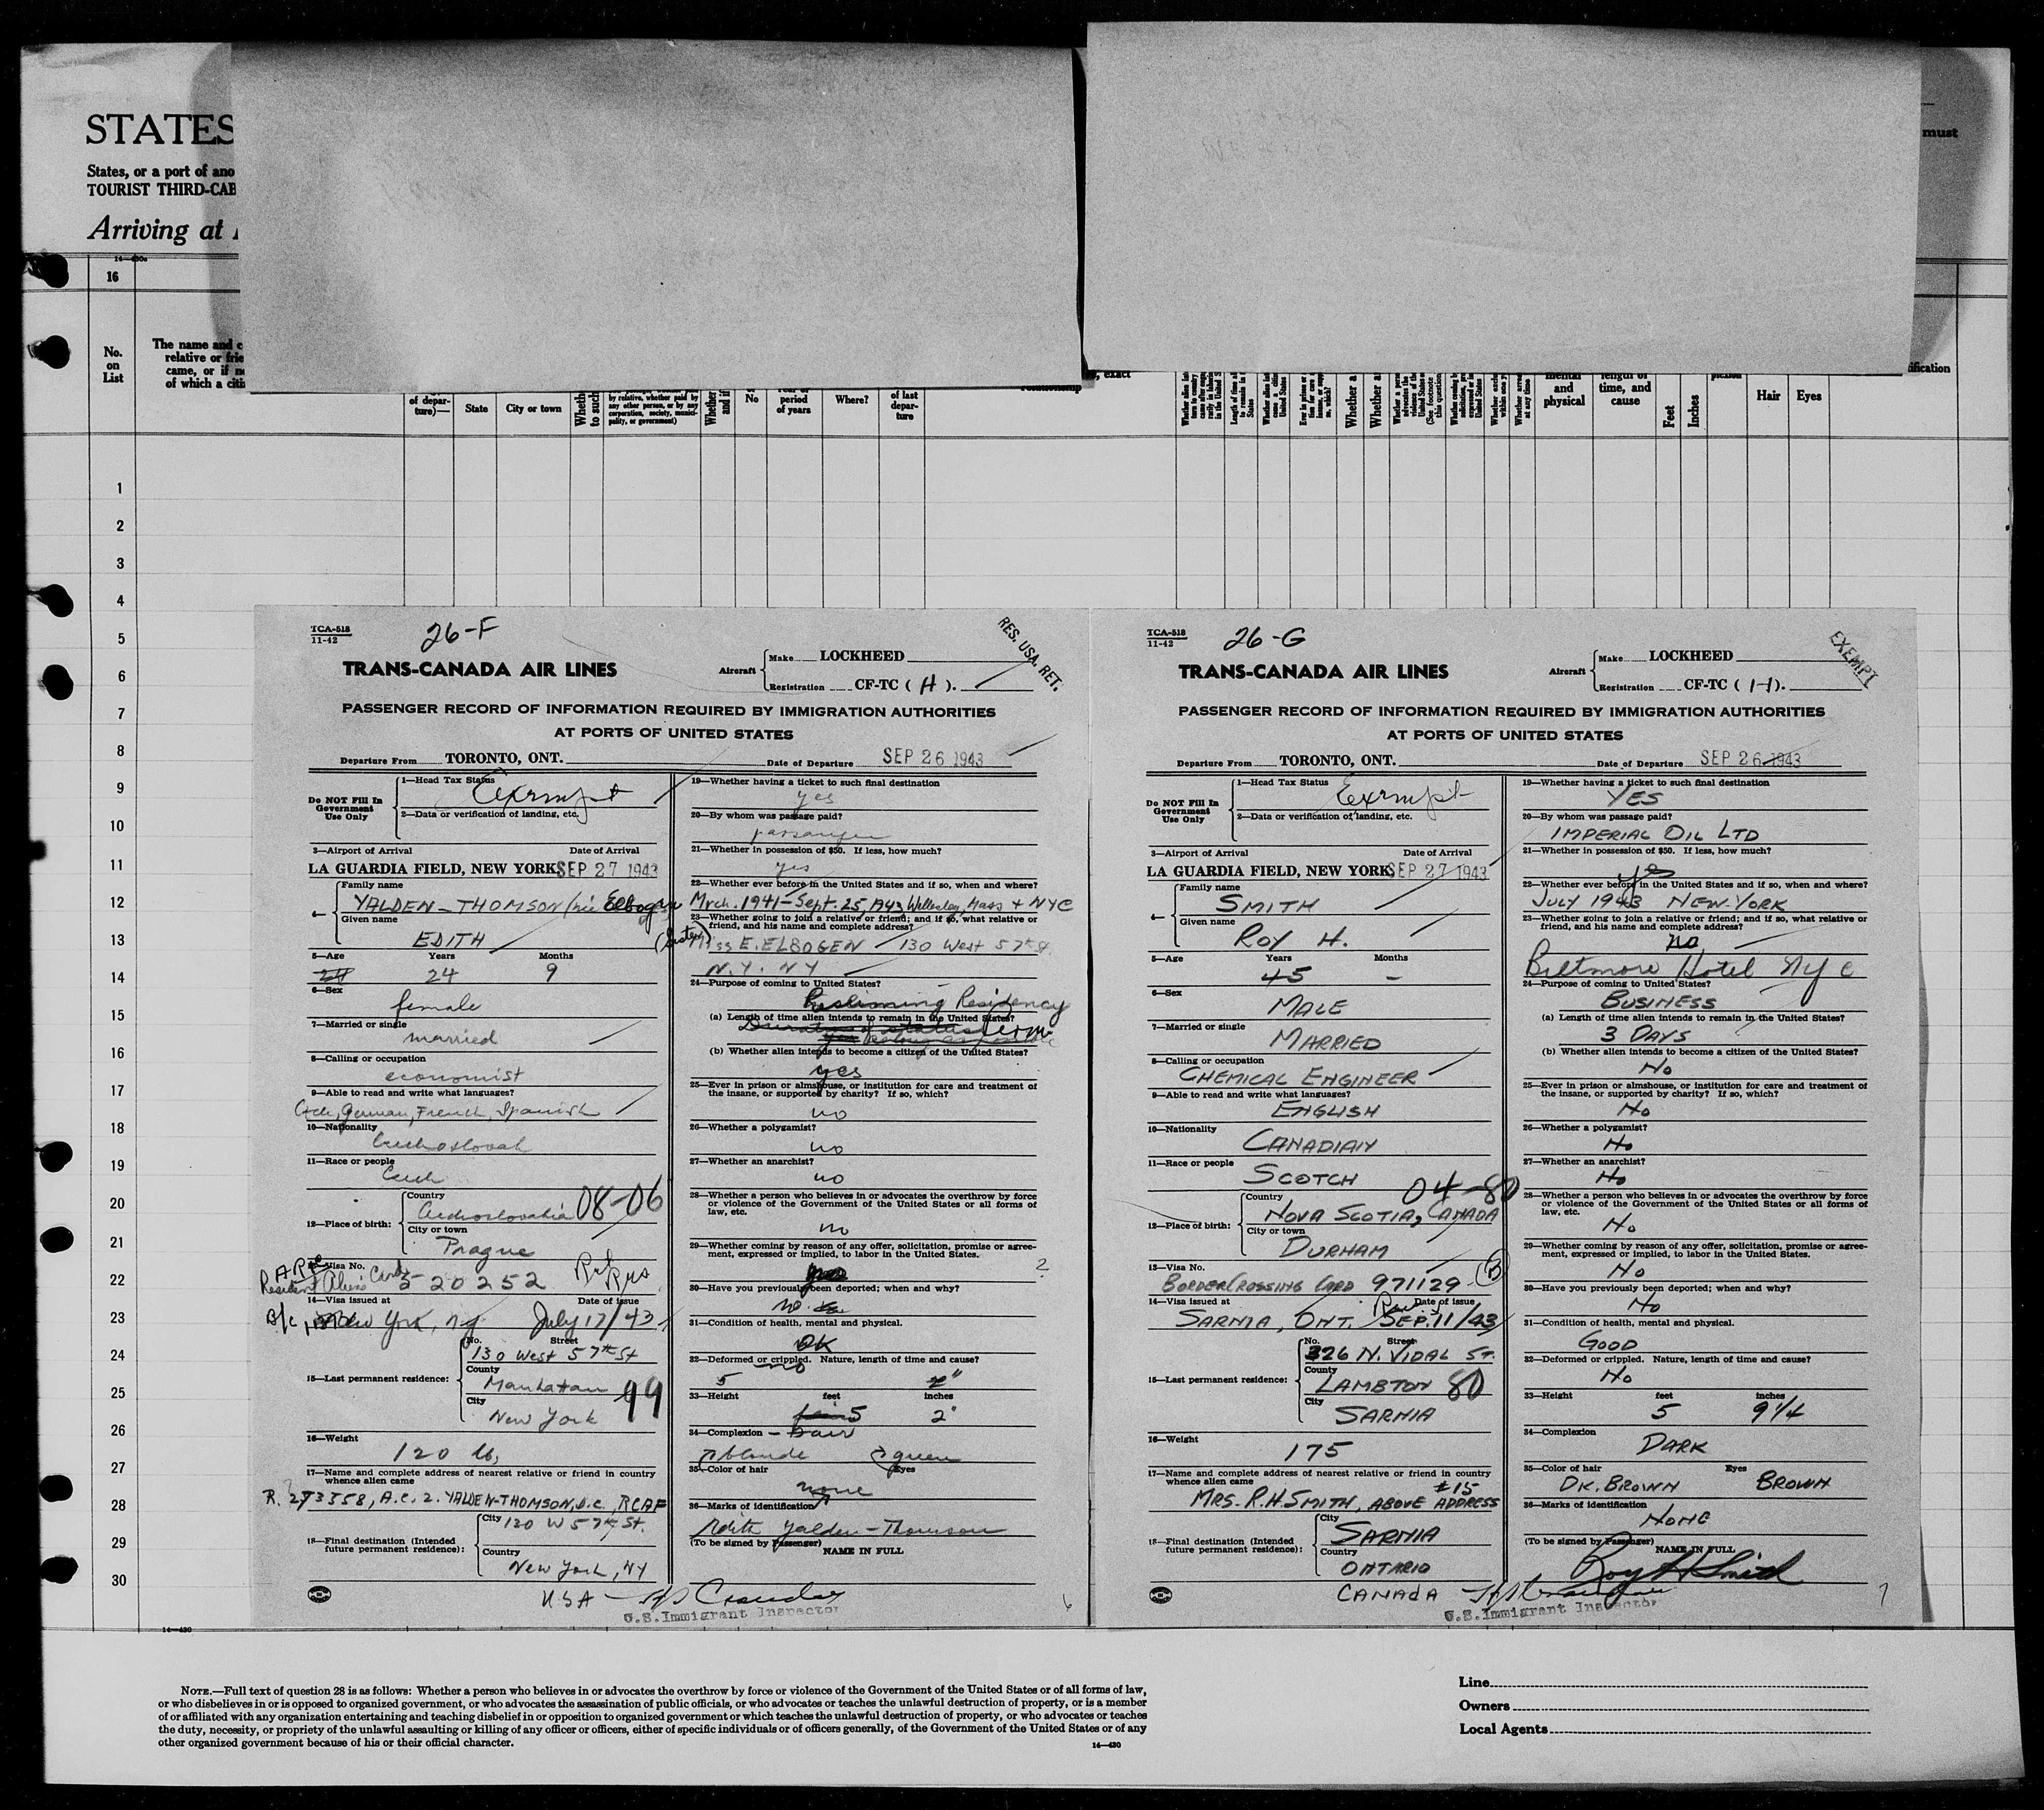 STATES
States, or a port of ano
TOURIST THIRD-CAB
Arriving at
must
16
No.
on
List
The name and c
relative or frie
came, or if n
of which a citi
of depar-
ture)—
State
City or town
by relative, whether paid by
any other person, or by any
corporation, society, munici-
pality, or government)
No
period
of years
Where?
of last
depar-
ture
relationship
, exact
mental
and
physical
length of
time, and
cause
Feet
Inches
Hair
Eyes
1
2
3
4
5
6
7
8
9
10
11
12
13
14
15
16
17
18
19
20
21
22
23
24
25
26
27
28
29
30
TCA-518
11-42
26-F
RES. USA. RET.
TRANS-CANADA AIR LINES
Aircraft
Make LOCKHEED
Registration CF-TC ( H ).
PASSENGER RECORD OF INFORMATION REQUIRED BY IMMIGRATION AUTHORITIES
AT PORTS OF UNITED STATES
Departure From TORONTO, ONT. Date of Departure SEP 26 1943
Do NOT Fill In
Government
Use Only
1—Head Tax Status
Exempt
2—Data or verification of landing, etc.
3—Airport of Arrival Date of Arrival
LA GUARDIA FIELD, NEW YORK SEP 27 1943
4—
Family name
YALDEN-THOMSON (née Elbogen
Given name
EDITH
5—Age Years Months
24 24 9
6—Sex
female
7—Married or single
married
8—Calling or occupation
economist
9—Able to read and write what languages?
German, French, Spanish
10—Nationality
Czechoslovak
11—Race or people
Czech
12—Place of birth:
Country
Czechoslovakia 08-06
City or town
Prague
Visa No.
Resident Alien's Card 520252
14—Visa issued at Date of issue
New York, NY July 17/43
15—Last permanent residence:
No. Street
130 West 57th St
County
Manhattan 99
City
New York
16—Weight
120 lb,
17—Name and complete address of nearest relative or friend in country
whence alien came
R. 273358, A.C. 2. YALDEN-THOMSON, D.C., RCAF
18—Final destination (Intended
future permanent residence):
City 120 W 57th St.
Country
New York, NY
USA
19—Whether having a ticket to such final destination
yes
20—By whom was passage paid?
passenger
21—Whether in possession of $50. If less, how much?
yes
22—Whether ever before in the United States and if so, when and where?
Mrch. 1941-Sept. 25, 1943 Wellesley, Mass + NYC
23—Whether going to join a relative or friend; and if so, what relative or
friend, and his name and complete address?
(Sister) Miss E. ELBOGEN 130 West 57th St.
N.Y. NY
24—Purpose of coming to United States?
Resuming Residency
(a) Length of time alien intends to remain in the United States?
Duration of status Perm
(b) Whether alien intends to become a citizen of the United States?
yes
25—Ever in prison or almshouse, or institution for care and treatment of
the insane, or supported by charity? If so, which?
no
26—Whether a polygamist?
no
27—Whether an anarchist?
no
28—Whether a person who believes in or advocates the overthrow by force
or violence of the Government of the United States or all forms of
law, etc.
no
29—Whether coming by reason of any offer, solicitation, promise or agree-
ment, expressed or implied, to labor in the United States.
?
30—Have you previously been deported; when and why?
no.
31—Condition of health, mental and physical.
OK
32—Deformed or crippled. Nature, length of time and cause?
no
5 2"
33—Height feet inches
5 2"
34—Complexion - fair
blonde green
35—Color of hair Eyes
none
36—Marks of identification
Edith Yalden-Thomson
(To be signed by Passenger)
NAME IN FULL
U.S. Immigrant Inspector
6
TCA-518
11-42
26-G
EXEMPT
TRANS-CANADA AIR LINES
Aircraft
Make LOCKHEED
Registration CF-TC ( H ).
PASSENGER RECORD OF INFORMATION REQUIRED BY IMMIGRATION AUTHORITIES
AT PORTS OF UNITED STATES
Departure From TORONTO, ONT. Date of Departure SEP 26 1943
Do NOT Fill In
Government
Use Only
1—Head Tax Status
Exempt
2—Data or verification of landing, etc.
3—Airport of Arrival Date of Arrival
LA GUARDIA FIELD, NEW YORK SEP 27 1943
4—
Family name
SMITH
Given name
ROY H.
5—Age Years Months
45 -
6—Sex
MALE
7—Married or single
MARRIED
8—Calling or occupation
CHEMICAL ENGINEER
9—Able to read and write what languages?
ENGLISH
10—Nationality
CANADIAN
11—Race or people
SCOTCH
12—Place of birth:
04-80
Country
NOVA SCOTIA, CANADA
City or town
DURHAM
13—Visa No.
BORDER CROSSING CARD 971129 (B)
14—Visa issued at Date of issue
SARNIA, ONT. SEP. 11/43
15—Last permanent residence:
No. Street
326 N. VIDAL ST.
County
LAMBTON 80
City
SARNIA
16—Weight
175
17—Name and complete address of nearest relative or friend in country
whence alien came
#15
MRS. R.H. SMITH, ABOVE ADDRESS
18—Final destination (Intended
future permanent residence):
City
SARNIA
Country
ONTARIO
CANADA
19—Whether having a ticket to such final destination
YES
20—By whom was passage paid?
IMPERIAL OIL LTD
21—Whether in possession of $50. If less, how much?
yes
22—Whether ever before in the United States and if so, when and where?
JULY 1943 NEW YORK
23—Whether going to join a relative or friend; and if so, what relative or
friend, and his name and complete address?
no
Biltmore Hotel NYC
24—Purpose of coming to United States?
BUSINESS
(a) Length of time alien intends to remain in the United States?
3 DAYS
(b) Whether alien intends to become a citizen of the United States?
No
25—Ever in prison or almshouse, or institution for care and treatment of
the insane, or supported by charity? If so, which?
No
26—Whether a polygamist?
No
27—Whether an anarchist?
No
28—Whether a person who believes in or advocates the overthrow by force
or violence of the Government of the United States or all forms of
law, etc.
No
29—Whether coming by reason of any offer, solicitation, promise or agree-
ment, expressed or implied, to labor in the United States.
No
30—Have you previously been deported; when and why?
No
31—Condition of health, mental and physical.
GOOD
32—Deformed or crippled. Nature, length of time and cause?
No
33—Height feet inches
5 9 1/4
34—Complexion
DARK
35—Color of hair Eyes
DK. BROWN BROWN
36—Marks of identification
NONE
(To be signed by Passenger)
NAME IN FULL
Roy H Smith
U.S. Immigrant Inspector
7
14—430
NOTE.—Full text of question 28 is as follows: Whether a person who believes in or advocates the overthrow by force or violence of the Government of the United States or of all forms of law,
or who disbelieves in or is opposed to organized government, or who advocates the assassination of public officials, or who advocates or teaches the unlawful destruction of property, or is a member
of or affiliated with any organization entertaining and teaching disbelief in or opposition to organized government or which teaches the unlawful destruction of property, or who advocates or teaches
the duty, necessity, or propriety of the unlawful assaulting or killing of any officer or officers, either of specific individuals or of officers generally, of the Government of the United States or of any
other organized government because of his or their official character.
14—430
Line
Owners
Local Agents